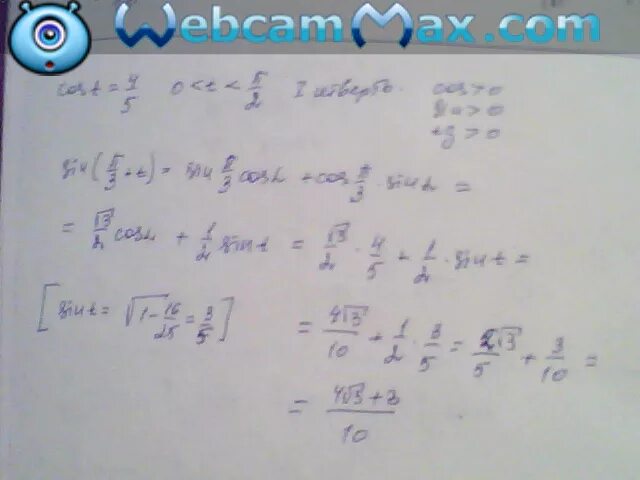 WebcamMax.com
cos t = 4/5 0 < t < π/2 I четверть. cos > 0
sin > 0
tg > 0
sin(π/3 + t) = sin π/3 cos t + cos π/3 · sin t =
= √3/2 cos t + 1/2 sin t = √3/2 · 4/5 + 1/2 · sin t =
[sin t = √1 - 16/25 = 3/5] = 4√3/10 + 1/2 · 3/5 = 2√3/5 + 3/10 =
= 4√3 + 3/10